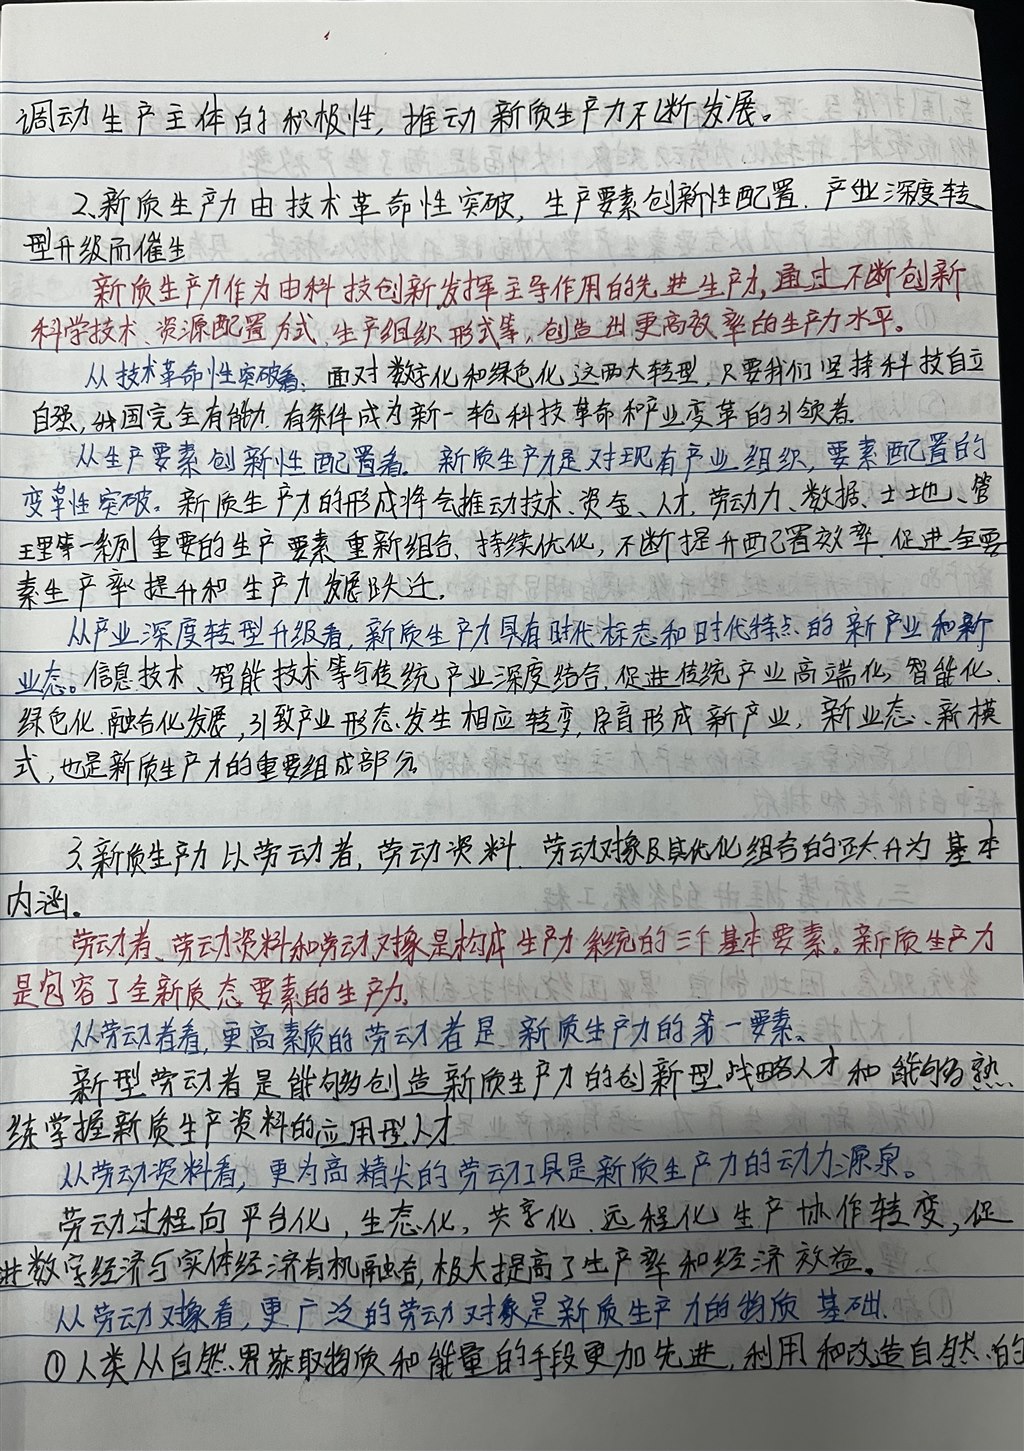 调动生产主体的积极性，推动新质生产力不断发展。
2、新质生产力由技术革命性突破，生产要素创新性配置，产业深度转
型升级而催生
新质生产力作为由科技创新发挥主导作用的先进生产力，通过不断创新
科学技术、资源配置方式、生产组织形式等，创造出更高效率的生产力水平。
从技术革命性突破看：面对数字化和绿色化这两大转型，只要我们坚持科技自立
自强，我国完全有能力、有条件成为新一轮科技革命和产业变革的引领者。
从生产要素创新性配置看。新质生产力是对现有产业组织，要素配置的
变革性突破。新质生产力的形成将会推动技术、资金、人才、劳动力、数据、土地、管
理等一系列重要的生产要素重新组合、持续优化，不断提升配置效率，促进全要
素生产率提升和生产力发展跃迁。
从产业深度转型升级看，新质生产力具有时代标志和时代特点的新产业和新
业态。信息技术、智能技术等与传统产业深度结合，促进传统产业高端化、智能化、
绿色化、融合化发展，引致产业形态发生相应转变，孕育形成新产业，新业态、新模
式，也是新质生产力的重要组成部分
3、新质生产力以劳动者，劳动资料、劳动对象及其优化组合的跃升为基本
内涵。
劳动者、劳动资料和劳动对象是构成生产力系统的三个基本要素。新质生产力
是包容了全新质态要素的生产力。
从劳动者看，更高素质的劳动者是新质生产力的第一要素。
新型劳动者是能够创造新质生产力的创新型战略人才和能够熟
练掌握新质生产资料的应用型人才
从劳动资料看，更为高精尖的劳动工具是新质生产力的动力源泉。
劳动过程向平台化，生态化，共享化、远程化生产协作转变，促
进数字经济与实体经济有机融合，极大提高了生产率和经济效益。
从劳动对象看，更广泛的劳动对象是新质生产力的物质基础。
①人类从自然界获取物质和能量的手段更加先进，利用和改造自然的